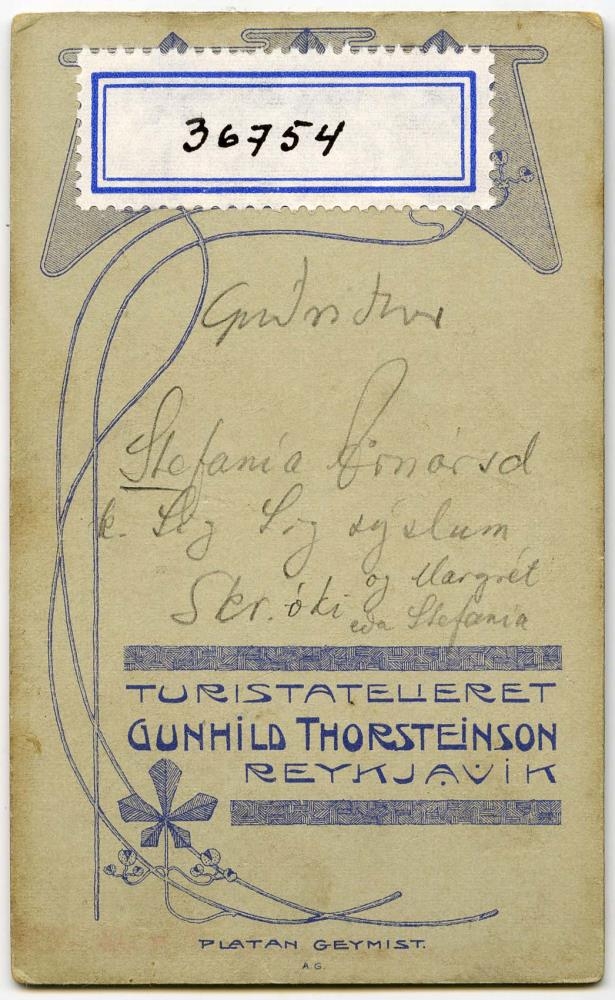 36754
Guðríður
Stefanía Arnórsd
k. Sig Sig sýslum
Skr. óki og Margrét
eða Stefanía
TURISTATELIERET
GUNHILD THORSTEINSON
REYKJAVIK
PLATAN GEYMIST.
A.G.